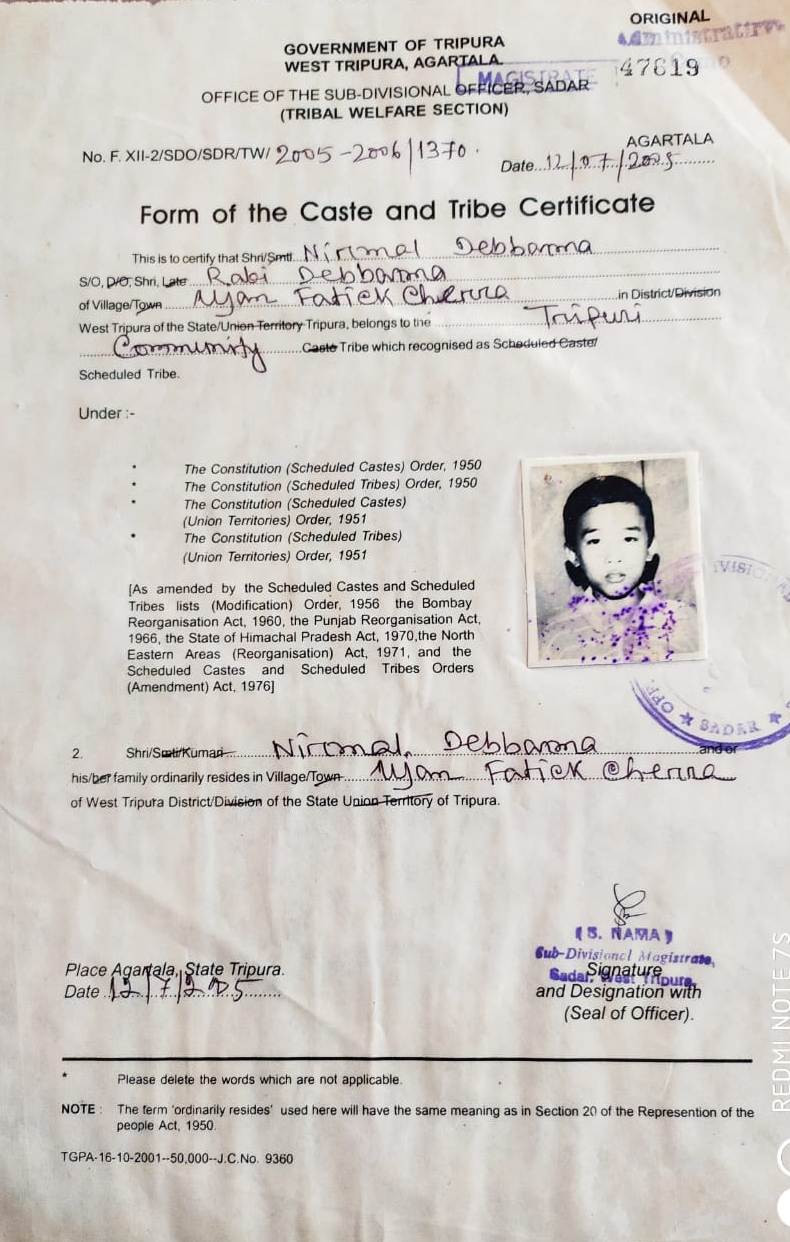 ORIGINAL
Administrative
GOVERNMENT OF TRIPURA
WEST TRIPURA, AGARTALA.
MAGISTRATE
47619
OFFICE OF THE SUB-DIVISIONAL OFFICER, SADAR
(TRIBAL WELFARE SECTION)
No. F. XII-2/SDO/SDR/TW/ 2005-2006/1370.
AGARTALA
Date...12/07/2005
Form of the Caste and Tribe Certificate
This is to certify that Shri/Smti. Nirmal Debbarma
S/O, D/O, Shri, Late Rabi Debbarma
of Village/Town Fatick Cherra in District/Division
West Tripura of the State/Union Territory Tripura, belongs to the Tripuri
Community Caste Tribe which recognised as Scheduled Caste/
Scheduled Tribe.
Under :-
* The Constitution (Scheduled Castes) Order, 1950
* The Constitution (Scheduled Tribes) Order, 1950
* The Constitution (Scheduled Castes)
(Union Territories) Order, 1951
* The Constitution (Scheduled Tribes)
(Union Territories) Order, 1951
[As amended by the Scheduled Castes and Scheduled
Tribes lists (Modification) Order, 1956 the Bombay
Reorganisation Act, 1960, the Punjab Reorganisation Act,
1966, the State of Himachal Pradesh Act, 1970,the North
Eastern Areas (Reorganisation) Act, 1971, and the
Scheduled Castes and Scheduled Tribes Orders
(Amendment) Act, 1976]
SADAR
2. Shri/Smti/Kumari Nirmal Debbarma and or
his/her family ordinarily resides in Village/Town Fatick Cherra
of West Tripura District/Division of the State Union Territory of Tripura.
( S. NAMA )
Sub-Divisional Magistrate,
Sadar, West Tripura.
Place Agartala, State Tripura.
Date 12/7/2005
Signature
and Designation with
(Seal of Officer).
* Please delete the words which are not applicable.
NOTE : The term 'ordinarily resides' used here will have the same meaning as in Section 20 of the Represention of the
people Act, 1950.
TGPA-16-10-2001--50,000--J.C.No. 9360
REDMI NOTE 7S